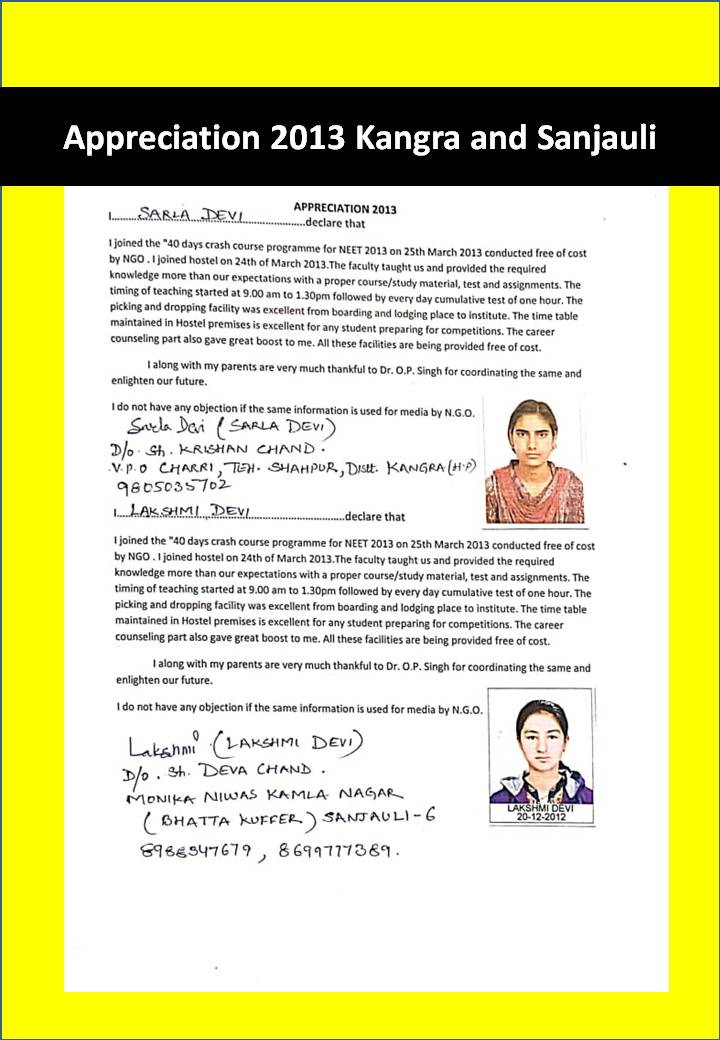 Appreciation 2013 Kangra and Sanjauli
APPRECIATION 2013
I......SARLA DEVI..............................declare that
I joined the "40 days crash course programme for NEET 2013 on 25th March 2013 conducted free of cost
by NGO . I joined hostel on 24th of March 2013.The faculty taught us and provided the required
knowledge more than our expectations with a proper course/study material, test and assignments. The
timing of teaching started at 9.00 am to 1.30pm followed by every day cumulative test of one hour. The
picking and dropping facility was excellent from boarding and lodging place to institute. The time table
maintained in Hostel premises is excellent for any student preparing for competitions. The career
counseling part also gave great boost to me. All these facilities are being provided free of cost.
I along with my parents are very much thankful to Dr. O.P. Singh for coordinating the same and
enlighten our future.
I do not have any objection if the same information is used for media by N.G.O.
Sarla Devi (SARLA DEVI)
D/o. Sh. KRISHAN CHAND.
V.P.O CHARRI, TEH. SHAHPUR, Distt. KANGRA (H.P)
9805035702
I....LAKSHMI DEVI..............................declare that
I joined the "40 days crash course programme for NEET 2013 on 25th March 2013 conducted free of cost
by NGO . I joined hostel on 24th of March 2013.The faculty taught us and provided the required
knowledge more than our expectations with a proper course/study material, test and assignments. The
timing of teaching started at 9.00 am to 1.30pm followed by every day cumulative test of one hour. The
picking and dropping facility was excellent from boarding and lodging place to institute. The time table
maintained in Hostel premises is excellent for any student preparing for competitions. The career
counseling part also gave great boost to me. All these facilities are being provided free of cost.
I along with my parents are very much thankful to Dr. O.P. Singh for coordinating the same and
enlighten our future.
I do not have any objection if the same information is used for media by N.G.O.
Lakshmi (LAKSHMI DEVI)
D/o. Sh. DEVA CHAND.
MONIKA NIWAS KAMLA NAGAR
(BHATTA KUFFER) SANJAULI-6
8988547679, 8699777389.
LAKSHMI DEVI
20-12-2012